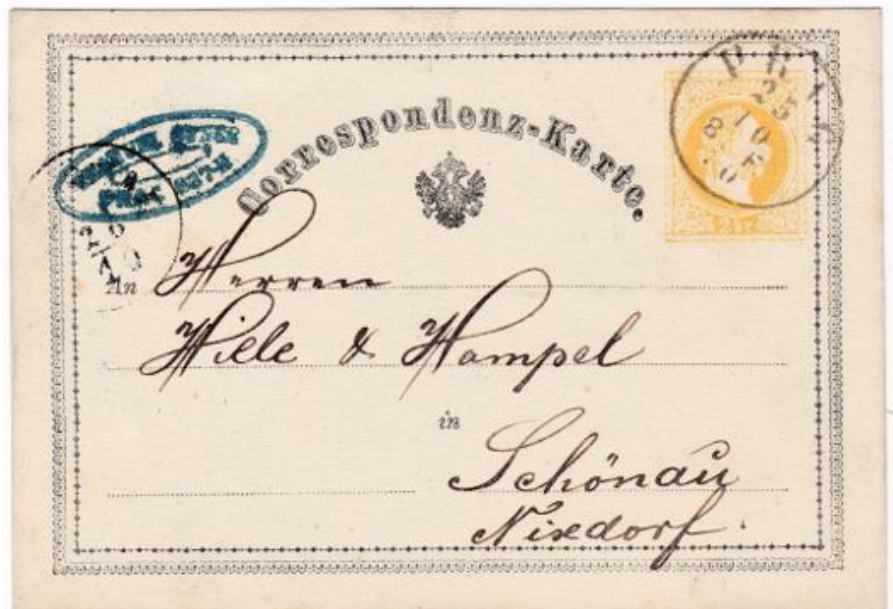 Correspondenz-Karte.
25
10
An Herren
Hiele & Hampel
in
Schönau
Nixdorf.